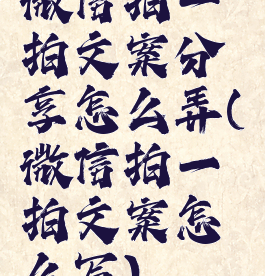 微信拍一
拍文案分
享怎么弄(
微信拍一
拍文案怎
么写)